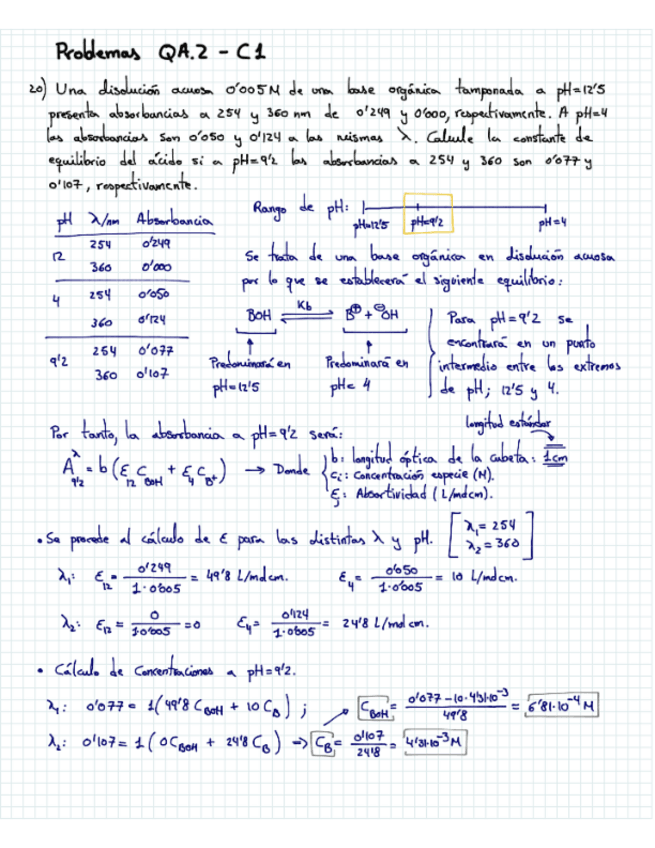 Problemas QA.2 - C1
20) Una disolución acuosa 0'005M de una base orgánica tamponada a pH=12'5
presenta absorbancias a 254 y 360 nm de 0'249 y 0'000, respectivamente. A pH=4
las absorbancias son 0'050 y 0'124 a las mismas λ. Calcule la constante de
equilibrio del ácido si a pH=9'2 las absorbancias a 254 y 360 son 0'077 y
0'107, respectivamente.
pH λ/nm Absorbancia
12 254 0'249
360 0'000
4 254 0'050
360 0'124
9'2 254 0'077
360 0'107
Rango de pH: pH=12'5 pH=9'2 pH=4
Se trata de una base orgánica en disolución acuosa
por lo que se establecerá el siguiente equilibrio:
BOH ⇌ Kb B⊕ + ⊖OH
Predominará en
pH=12'5
Predominará en
pH= 4
Para pH=9'2 se
encontrará en un punto
intermedio entre los extremos
de pH; 12'5 y 4.
Por tanto, la absorbancia a pH=9'2 será:
longitud estándar
A^λ_9'2 = b(ε_12 C_BOH + ε_4 C_B+) → Donde
b: longitud óptica de la cubeta: 1cm
ci: Concentración especie (M).
εj: Absortividad (L/mol cm).
• Se procede al cálculo de ε para las distintas λ y pH. [λ1 = 254
λ2 = 360]
λ1: ε12 = 0'249 / 1·0'005 = 49'8 L/mol cm. ε4 = 0'050 / 1·0'005 = 10 L/mol cm.
λ2: ε12 = 0 / 1·0'005 = 0 ε4 = 0'124 / 1·0'005 = 24'8 L/mol cm.
• Cálculo de Concentraciones a pH=9'2.
λ1: 0'077 = 1(49'8 C_BOH + 10 C_B) ; C_BOH = 0'077 - 10·4'31·10^-3 / 49'8 = 6'81·10^-4 M
λ2: 0'107 = 1(0 C_BOH + 24'8 C_B) → C_B = 0'107 / 24'8 = 4'31·10^-3 M